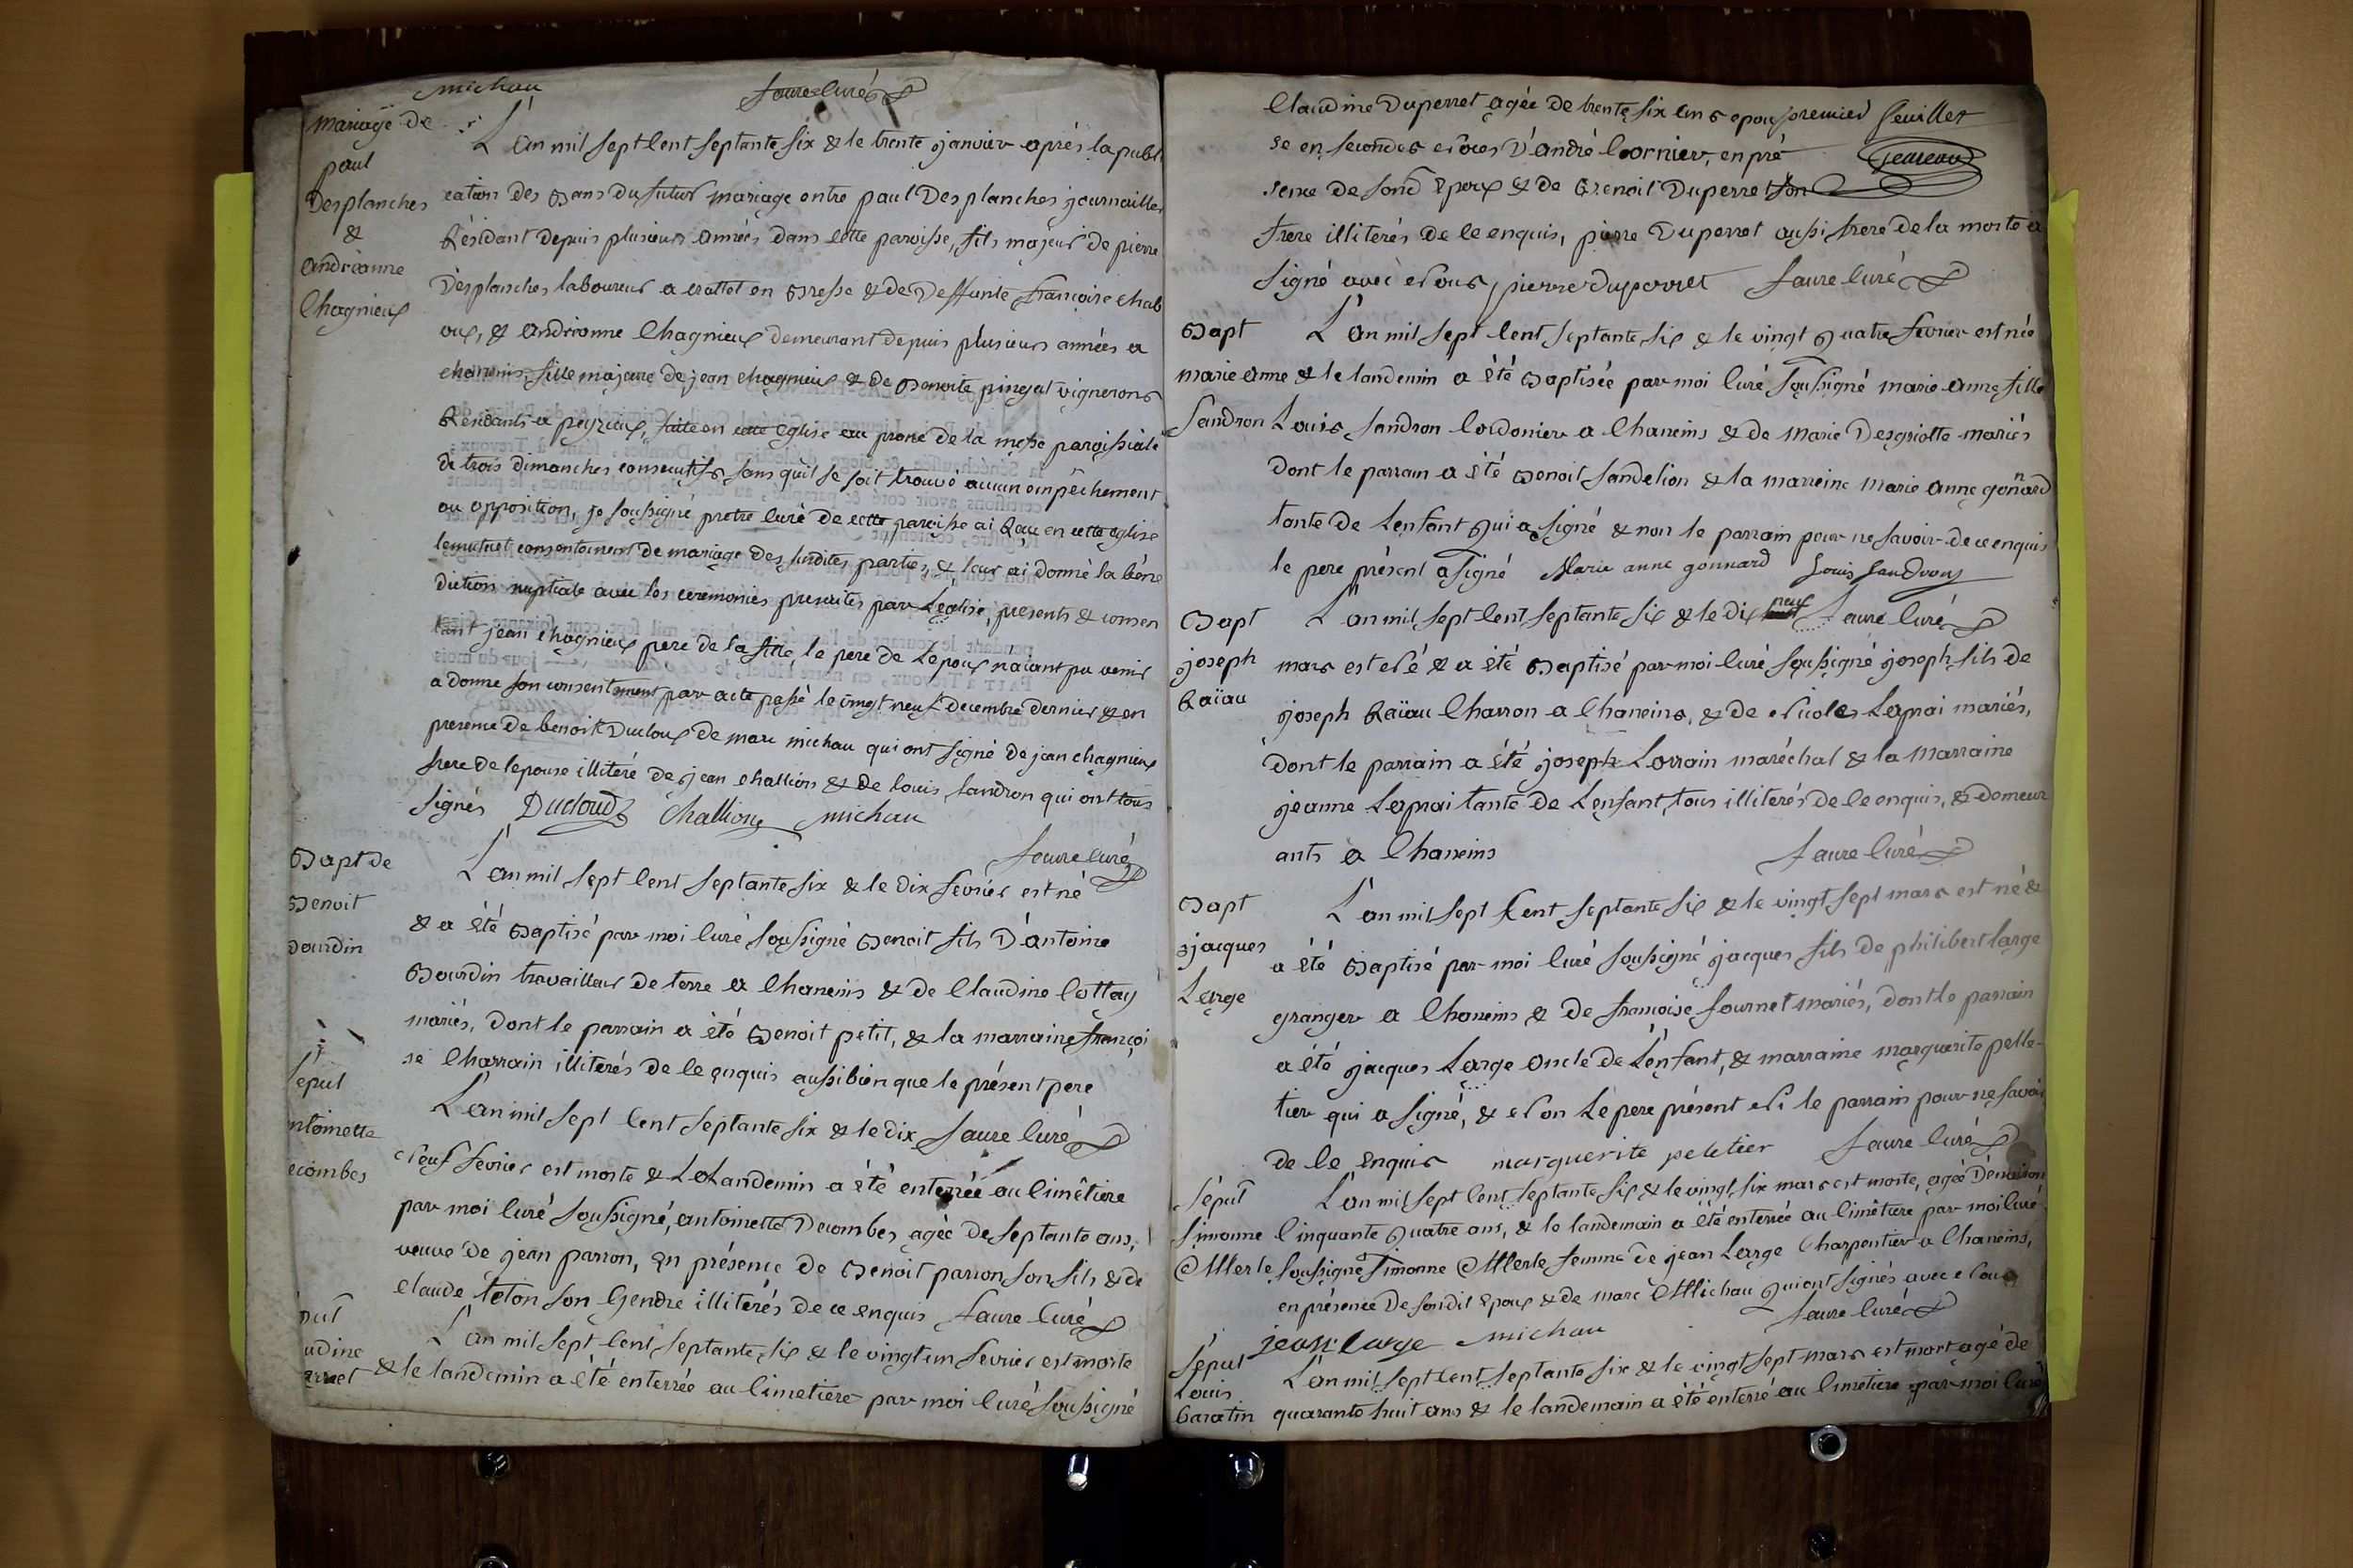 michau faure Curé
mariage de
paul
Desplanches
&
andréanne
Chagnieux
L'an mil sept Cent septante six & le trente janvier après la publi
cation des Bans du futur mariage entre paul Desplanches journaillier
Résidant depuis plusieurs années dans cette paroisse, fils majeur de pierre
Desplanches laboureur a crottet en Bresse & de Deffunte françoise chab
oux, & andréanne Chagnieux demeurant depuis plusieurs années a
chaneins, fille majeure de jean chagnieux & de Benoite pingat vignerons
Résidants a peyzieux, faite en cette Eglise au prone de la messe paroissiale
de trois dimanches consecutifs sans qu'il se soit trouvé aucun empêchement
ou opposition, je soussigné pretre Curé de cette paroisse ai Reçu en cette église
le mutuel consentement de mariage des susdites parties, & leur ai donné la béné
diction nuptiale avec les ceremonies prescrites par L'eglise, presents & consen
tant jean chagnieux pere de la fille, le pere de L'epoux n'aiant pu venir
a donné son consentement par acte passé le vingt neuf decembre dernier & en
presence de benoit Ducloux de marc michau qui ont signé de jean chagnieux
frere de l'epouse illiteré de jean challion & de louis sandron qui ont tous
signés Ducloud Challion michau
faure curé
Bapt de
Benoit
Bourdin
L'an mil sept Cent septante six & le dix fevrier est né
& a été Baptisé par moi Curé soussigné Benoit fils D'antoine
Bourdin travailleur de terre a Chaneins & de Claudine Cottay
mariés, dont le parrain a été Benoit petit, & la marraine françoi
se Charrain illiterés de Ce enquis aussi bien que le présent pere
faure Curé
Sepul
ntoinette
ecombes
L'an mil sept Cent septante six & le dix
Neuf fevrier est morte & Le Landemin a été enterrée au Cimêtiere
par moi Curé soussigné, antoinette Decombes, agée de septante ans,
veuve de jean parron, en présence de Benoit parron son fils & de
claude teton son Gendre illiterés de ce enquis faure Curé
pul
udine
erret
L'an mil sept Cent septante six & le vingt un fevrier est morte
& le landemin a été enterrée au Cimetiere par moi Curé soussigné
Claudine Duperret agée de trente six ans epou premier feuillet
se en secondes Noces D'andré Cornier, en pré
sence de sond Epoux & de Benoit Duperret son
frere illiterés de Ce enquis, pierre Duperret aussi frere de la morte a
signé avec Nous pierre duperret faure Curé
Bapt
marie anne
Sandron
L'an mil sept Cent septante six & le vingt Quatre fevrier est née
& le landemin a été Baptisée par moi Curé soussigné marie anne fille
Louis sandron Cordonier a Chaneins & de Marie Desgriotte mariés
dont le parrain a été Benoit sandelion & la marreine Marie anne gonnard
tante de L'enfant Qui a signé & non le parrain pour ne savoir de ce enquis
le pere présent a signé Marie anne gonnard Louis Sandron
faure Curé
Bapt
joseph
Raïau
L'an mil sept Cent septante six & le dix neuf
mars est Né & a été Baptisé par moi Curé soussigné joseph fils de
joseph Raïau Charron a Chaneins, & de Nicole Laprai mariés,
dont le parrain a été joseph Lorrain maréchal & la Marraine
jeanne Laprai tante de L'enfant, tous illiterés de Ce enquis, & demeur
ants a Chaneins faure Curé
Bapt
jacques
Large
L'an mil sept Cent septante six & le vingt sept mars est né &
a été Baptisé par moi Curé soussigné jacques fils de philibert large
granger a Chaneins & de françoise fournet mariés, dont le parrain
a été jacques Large oncle de L'enfant, & marraine marguerite pelle-
tier qui a signé, & Non Le pere présent Ni le parrain pour ne savoir
de Ce Enquis marguerite peletier faure Curé
Sépul
Simonne
Merle
L'an mil sept Cent septante six & le vingt six mars est morte, agée D'environ
Cinquante Quatre ans, & le landemain a été enterrée au Cimêtiere par moi Curé
soussigné Simonne Merle femme de jean Large Charpentier a Chaneins,
en présence de son dit Epoux & de marc Michau Qui ont signés avec Nous
jean large michau faure Curé
Sépul
Louis
Baratin
L'an mil sept Cent septante six & le vingt sept mars est mort agé de
quarante huit ans & le landemain a été enterré au Cimetiere par moi Curé